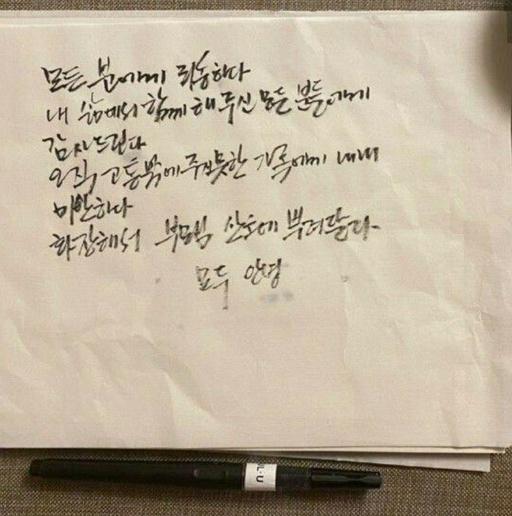 모든 분에게 죄송하다
내 삶에서 함께 해 주신 모든 분들에게
감사드린다
오직 고통밖에 주지 못한 가족에게 내내
미안하다
화장해서 부모님 산소에 뿌려달라
모두 안녕
L·U